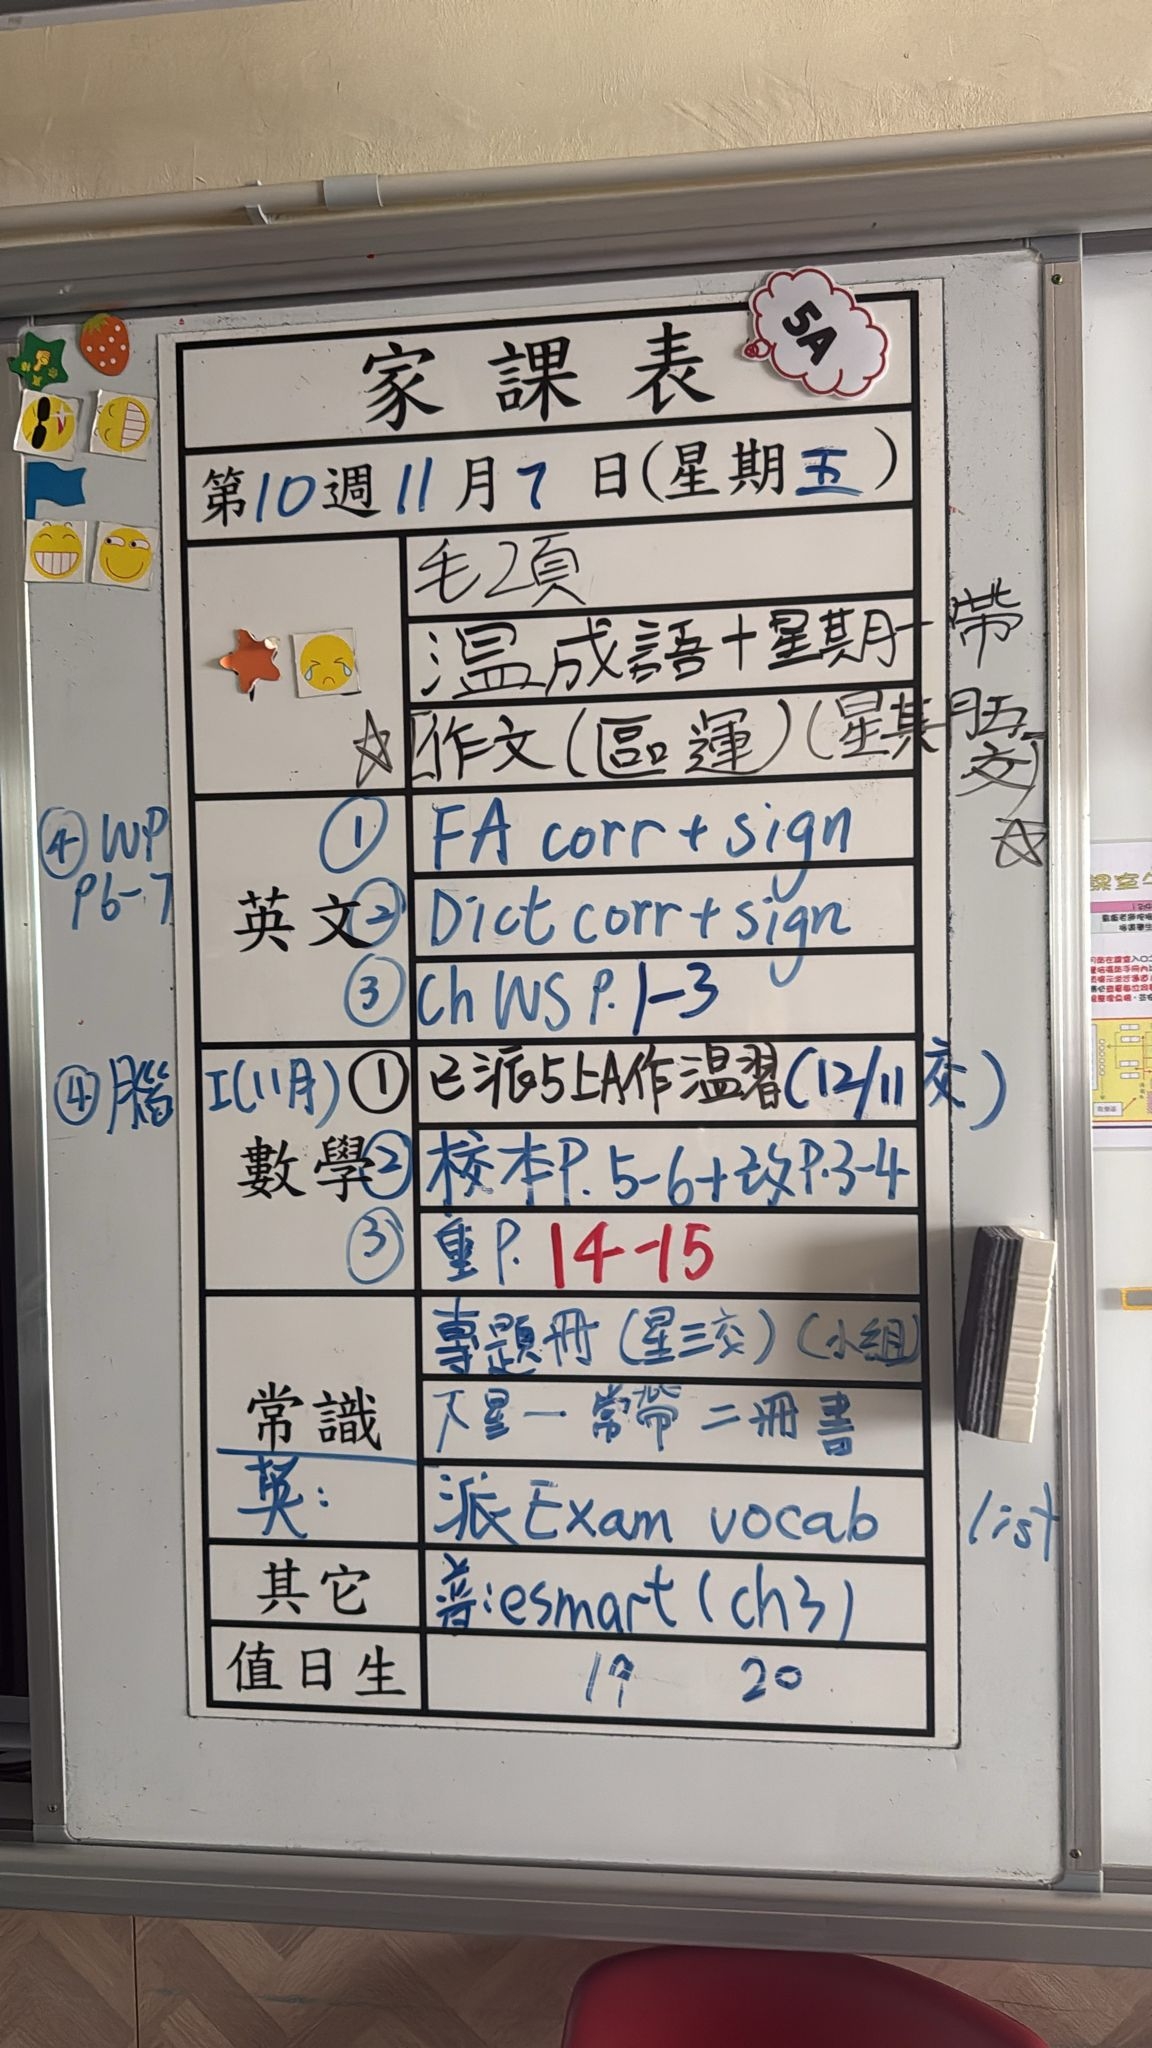 5A
家課表
第10週11月7日(星期五)
毛2頁
溫成語+星期一帶
☆作文(區運)(星期五交)☆
英文
① FA corr + sign
② Dict corr + sign
③ Ch WS P.1-3
④ WP P6-7
數學
I(11月) ① 已派5上A作溫習(12/11交)
② 校本P.5-6+改P.3-4
③ 重P.14-15
④ 腦
常識
專題冊(星三交)(小組)
下星一常帶二冊書
英: 派Exam vocab list
其它
普:esmart(ch3)
值日生
19 20